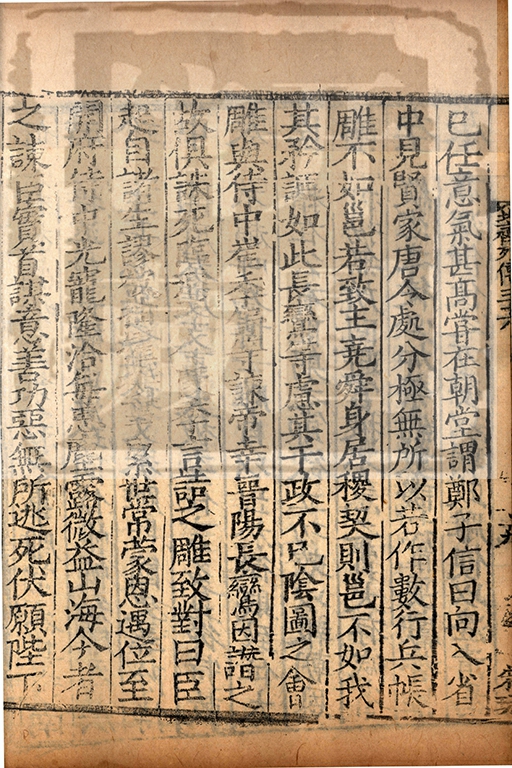 已任意氣甚高嘗在朝堂謂鄭子信曰向入省
中見賢家唐令處分極無所以若作數行兵帳
雕不如邕若致主堯舜身居稷契則邕不如我
其矜誕如此長鸞等慮其干政不已陰圖之會
雕與侍中崔季舒等諫帝幸晉陽長鸞因譖之
故俱誅死
言詰之雕致對曰臣
起自諸生謬 累世常蒙恩遇位至
開府侍中光寵隆洽每思塵露微益山海今者
之諫臣實首謀意善功惡無所逃死伏願陛下